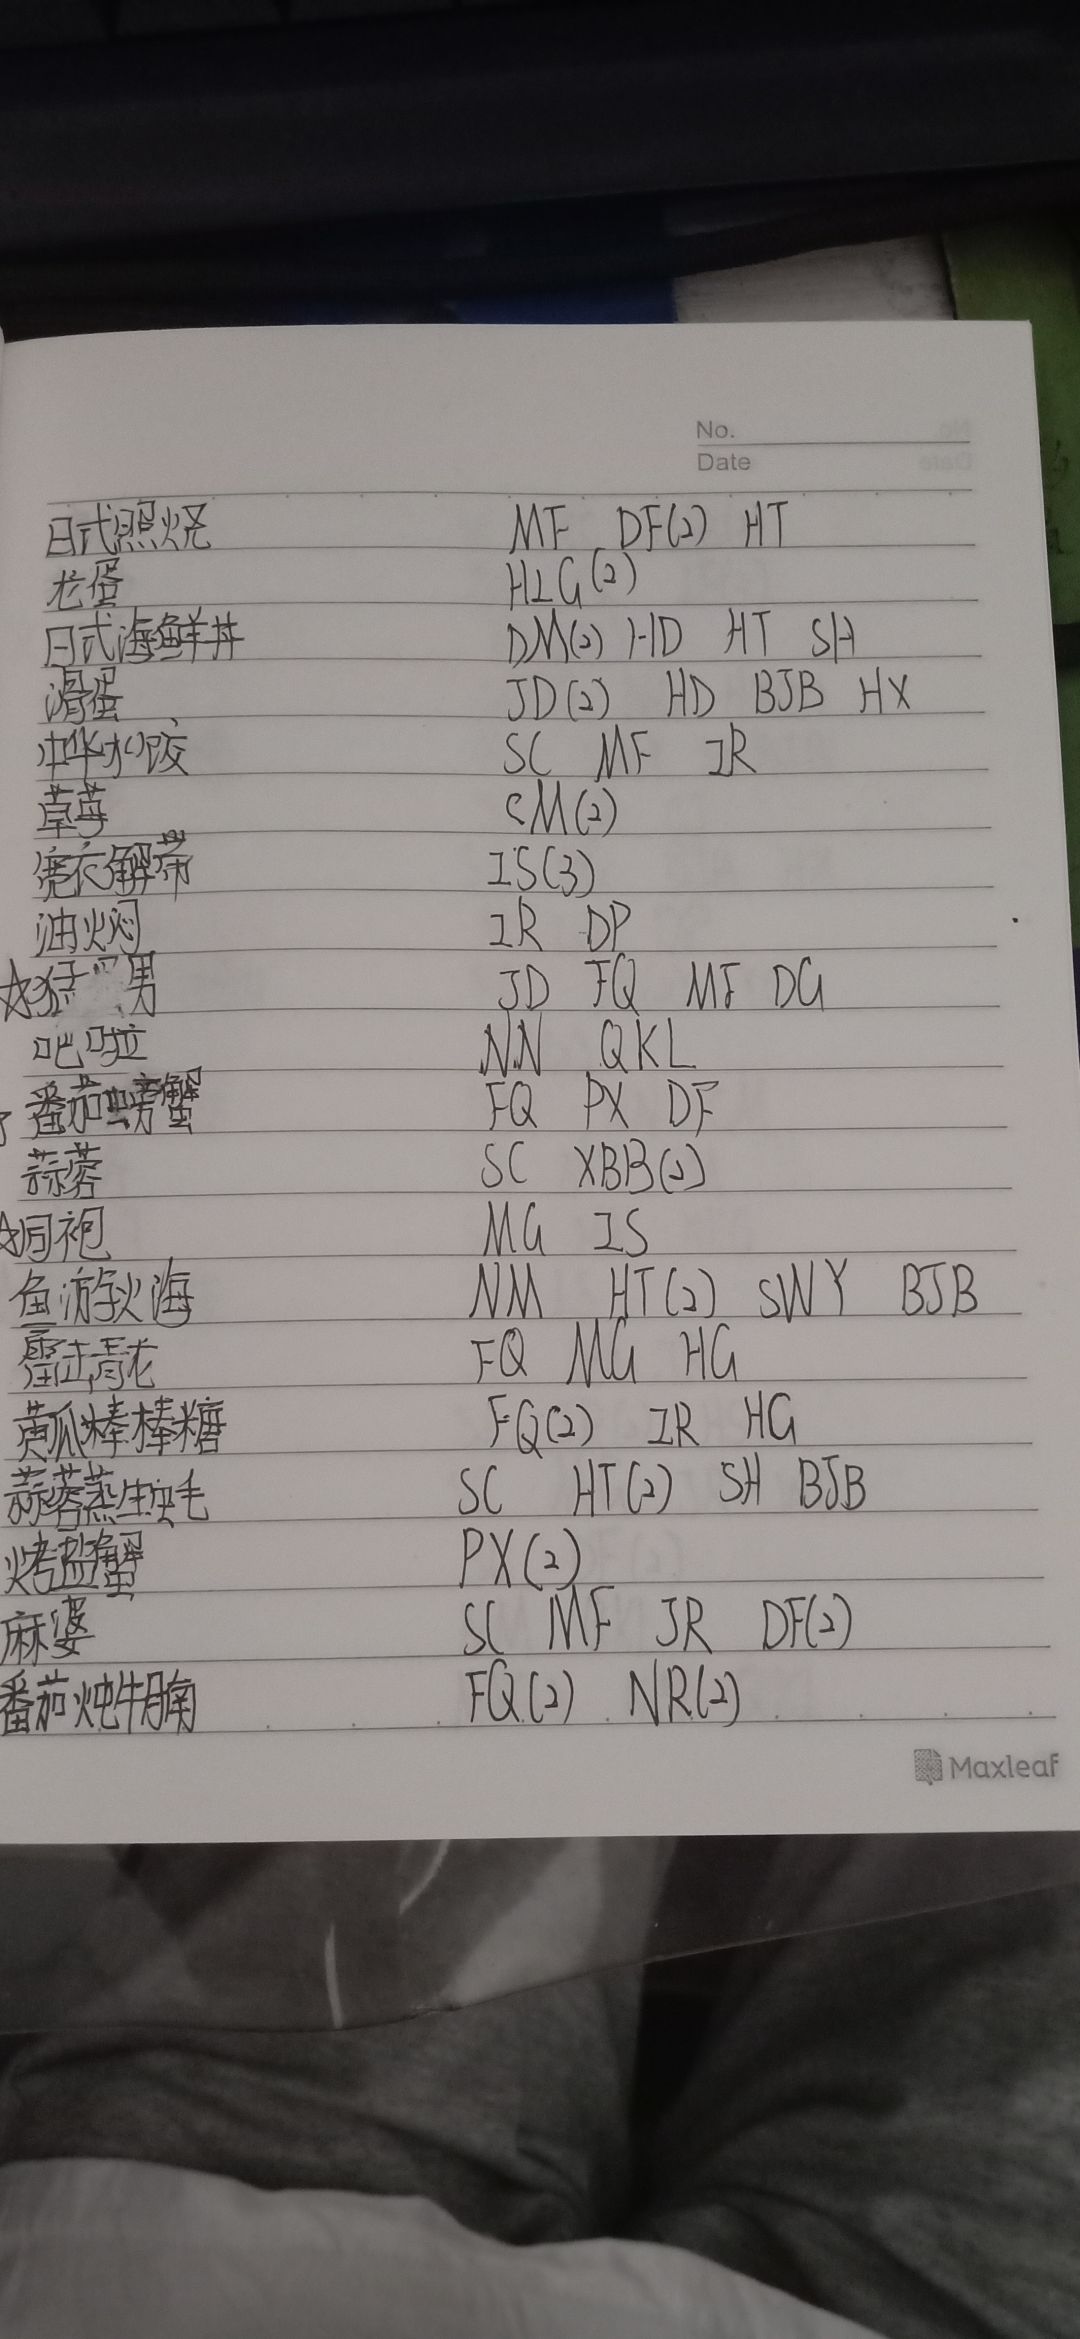 No.
Date
日式照烧 MF DF(2) HT
龙蛋 HLG(2)
日式海鲜丼 DM(2) HD HT SH
滑蛋 JD(2) HD BJB HX
中华水饺 SC MF IR
草莓 CM(2)
宽衣解带 IS(3)
油焖 IR DP
☆猛男 JD FQ MF DG
吧啦 NN QKL
番茄螃蟹 FQ PX DF
蒜蓉 SC XBB(2)
☆同袍 MG IS
鱼游火海 NM HT(2) SWY BJB
雷击青龙 FQ MG HG
黄瓜棒棒糖 FQ(2) IR HG
蒜蓉蒸生蚝 SC HT(2) SH BJB
烤盐蟹 PX(2)
麻婆 SC MF JR DF(2)
番茄炖牛腩 FQ(2) NR(2)
Maxleaf